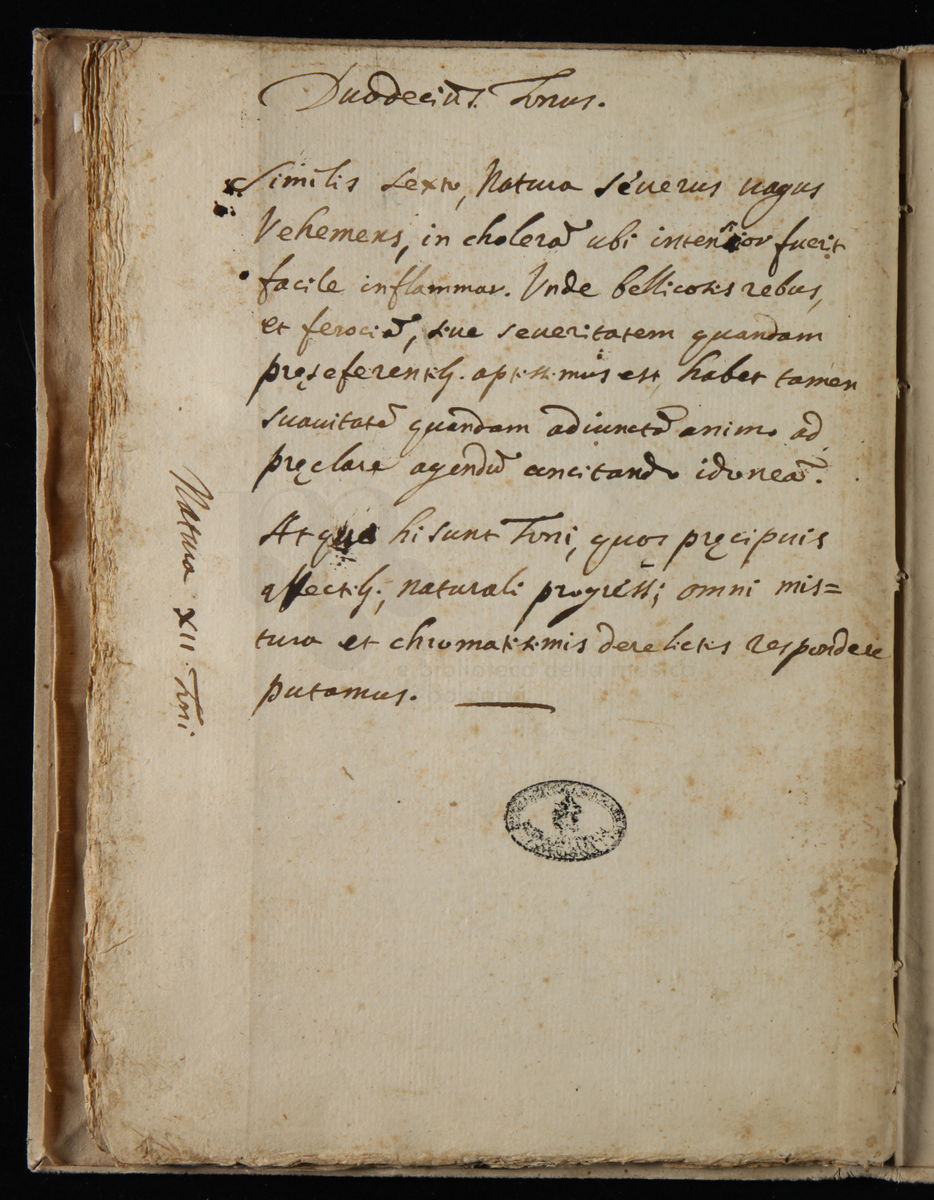 Duodecimũs. Tonus.
Similis Sexto, Natura seuerus uagus
Vehemens, in cholerã ubi intensior fuerit
facile inflammar. Vnde bellicosis rebus,
et ferociã, siue seueritatem quandam
pręseferentib9. aptissimus est, habet tamen
suauitatẽ quandam adiunctã animo ad
pręclare agendũ concitando idoneã.
Atque hi sunt Toni, quos pręcipuis
affectib9; naturali progressu; omni mis=
tura et chromatismis derelictis respondere
putamus.
Natura XII. Toni